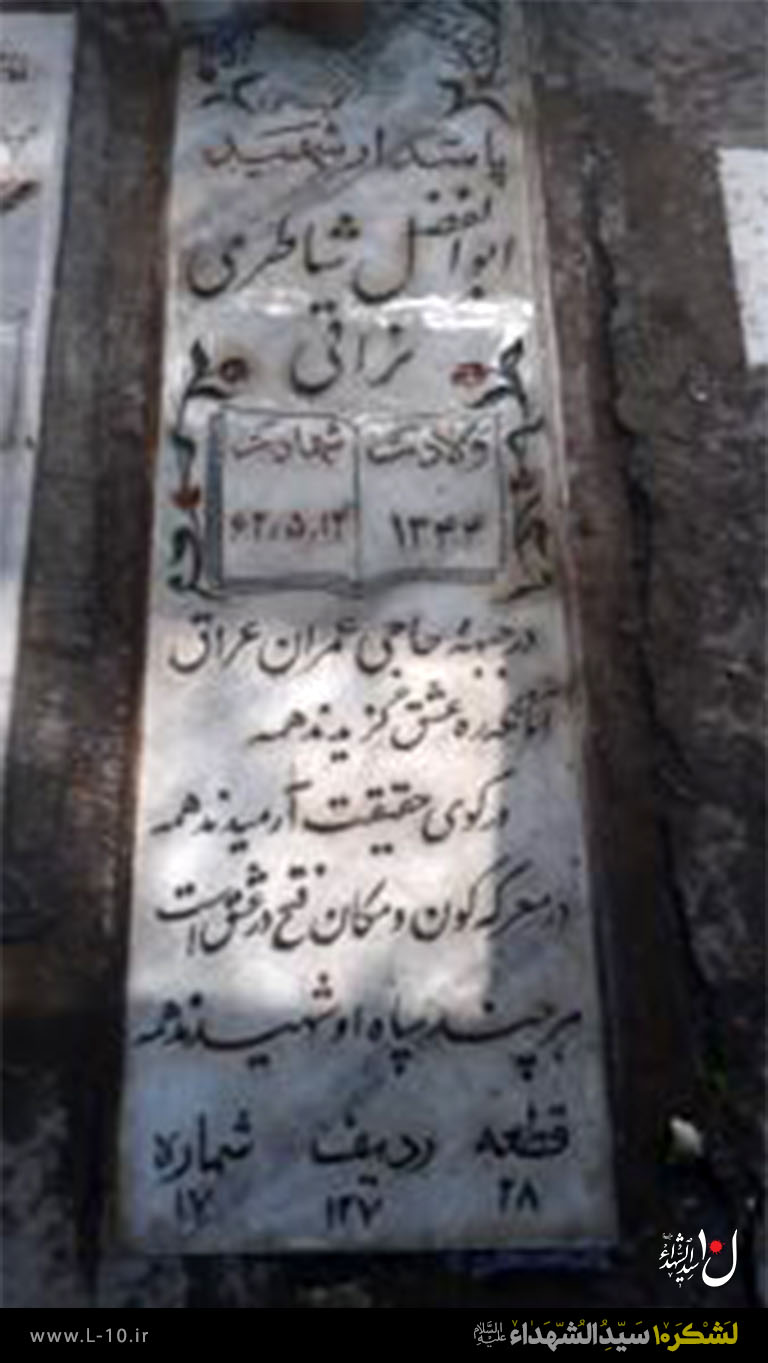 پاسدار شهید
ابوالفضل شاطری
نراقی
ولادت شهادت
۱۳۴۴ ۶۲٫۵٫۱۲
در جبهه حاجی عمران عراق
آنانکه ره عشق گزیدند همه
در کوی حقیقت آرمیدند همه
در معرکه کون و مکان فتح در عشق است
هر چند سپاه او شهیدند همه
قطعه ردیف شماره
۲۸ ۱۲۷ ۱۷
ل۱۰ سیدالشهداء
www.L-10.ir لشکر۱۰ سیّدالشّهداء علیه السلام